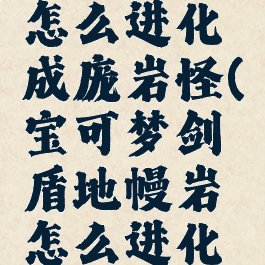 怎么进化
成庞岩怪(
宝可梦剑
盾地幔岩
怎么进化